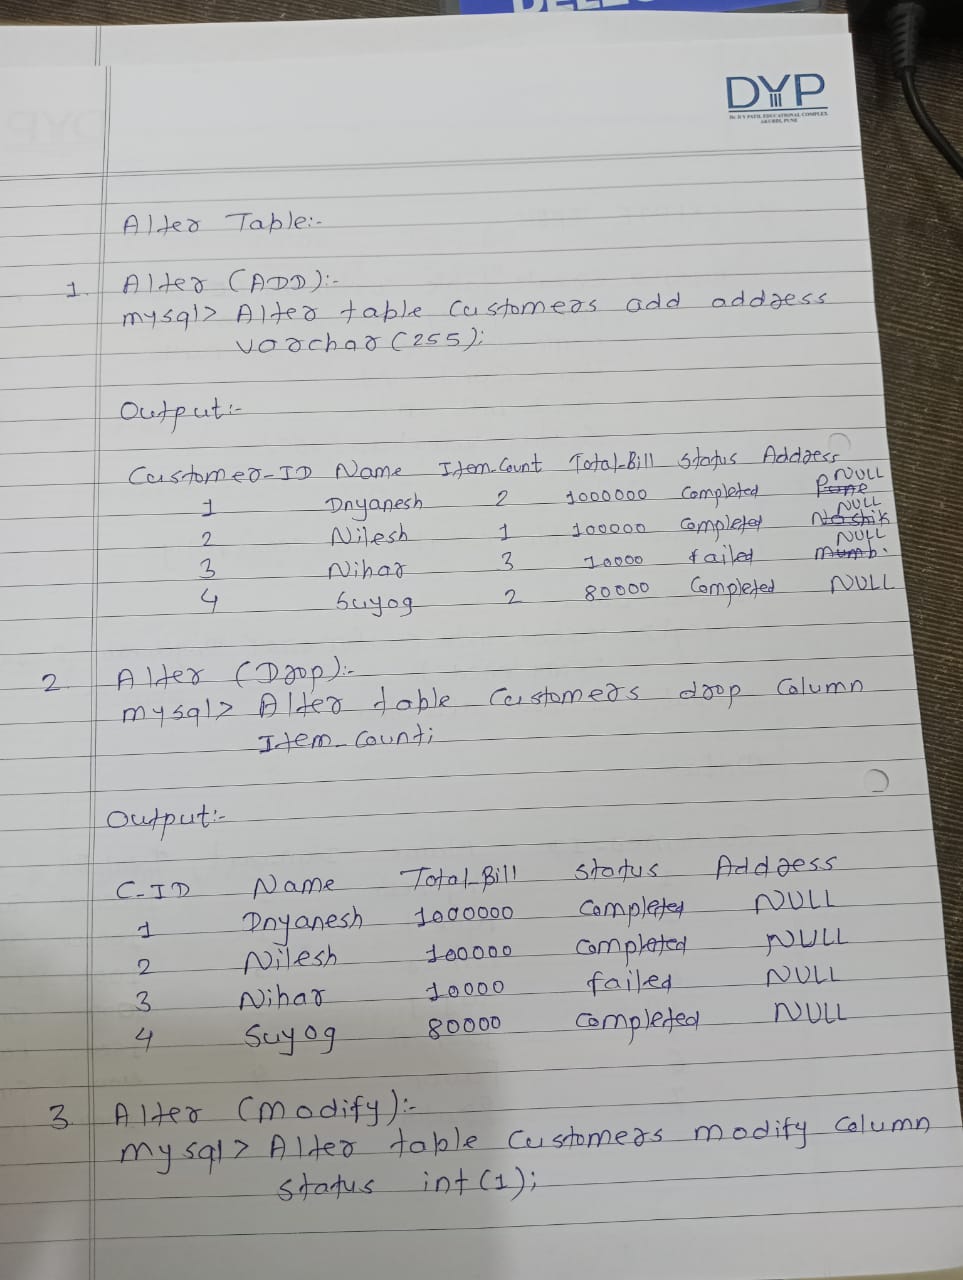 DYP
Dr. D Y PATIL EDUCATIONAL COMPLEX
AKURDI, PUNE
Alter Table:-
1. Alter (ADD):-
mysql> Alter table Customers add address
varchar (255);
Output:-
Customer-ID Name Item-Count Total-Bill Status Address
1 Dnyanesh 2 1000000 Completed Pune NULL
2 Nilesh 1 100000 Completed Nashik NULL
3 Nihar 3 10000 failed Mumb. NULL
4 Suyog 2 80000 Completed NULL
2 Alter (Drop):-
mysql> Alter table Customers drop Column
Item-Count;
Output:-
C-ID Name Total-Bill Status Address
1 Dnyanesh 1000000 Completed NULL
2 Nilesh 100000 Completed NULL
3 Nihar 10000 failed NULL
4 Suyog 80000 Completed NULL
3 Alter (Modify):-
mysql> Alter table Customers modify Column
status int (1);